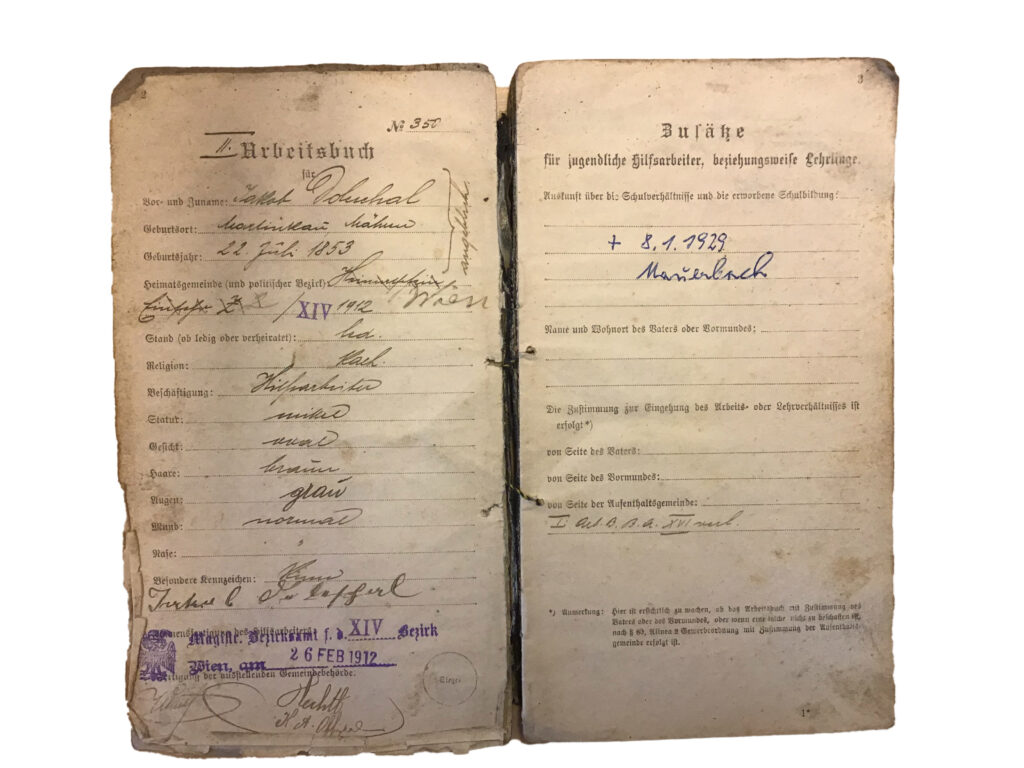 2
№ 350
II. Arbeitsbuch
für
Vor- und Zuname: Jakob Dolezhal
Geburtsort: Martinkau, Mähren
Geburtsjahr: 22. Juli 1853
Heimatsgemeinde (und politischer Bezirk) Wien
XIV 1912
Stand (ob ledig oder verheiratet): led.
Religion: kath
Beschäftigung: Hilfsarbeiter
Statur: mittel
Gesicht: oval
Haare: braun
Augen: grau
Mund: normal
Nase: "
Besondere Kennzeichen:
Namensfertigung des Hilfsarbeiters
Magistr. Bezirksamt f. d. XIV Bezirk
Wien, am 26 FEB 1912
Fertigung der ausstellenden Gemeindebehörde.
(Siegel)
3
Zusätze
für jugendliche Hilfsarbeiter, beziehungsweise Lehrlinge.
Auskunft über die Schulverhältnisse und die erworbene Schulbildung:
+ 8.1.1929
Mauerbach
Name und Wohnort des Vaters oder Vormundes:
Die Zustimmung zur Eingehung des Arbeits- oder Lehrverhältnisses ist
erfolgt*)
von Seite des Vaters:
von Seite des Vormundes:
von Seite der Aufenthaltsgemeinde:
I B. B. A. XVI
*) Anmerkung: Hier ist ersichtlich zu machen, ob das Arbeitsbuch mit Zustimmung des
Vaters oder des Vormundes, oder wenn eine solche nicht zu beschaffen ist,
nach § 80, Alinea 2 Gewerbeordnung mit Zustimmung der Aufenthalts-
gemeinde erfolgt ist.
1*